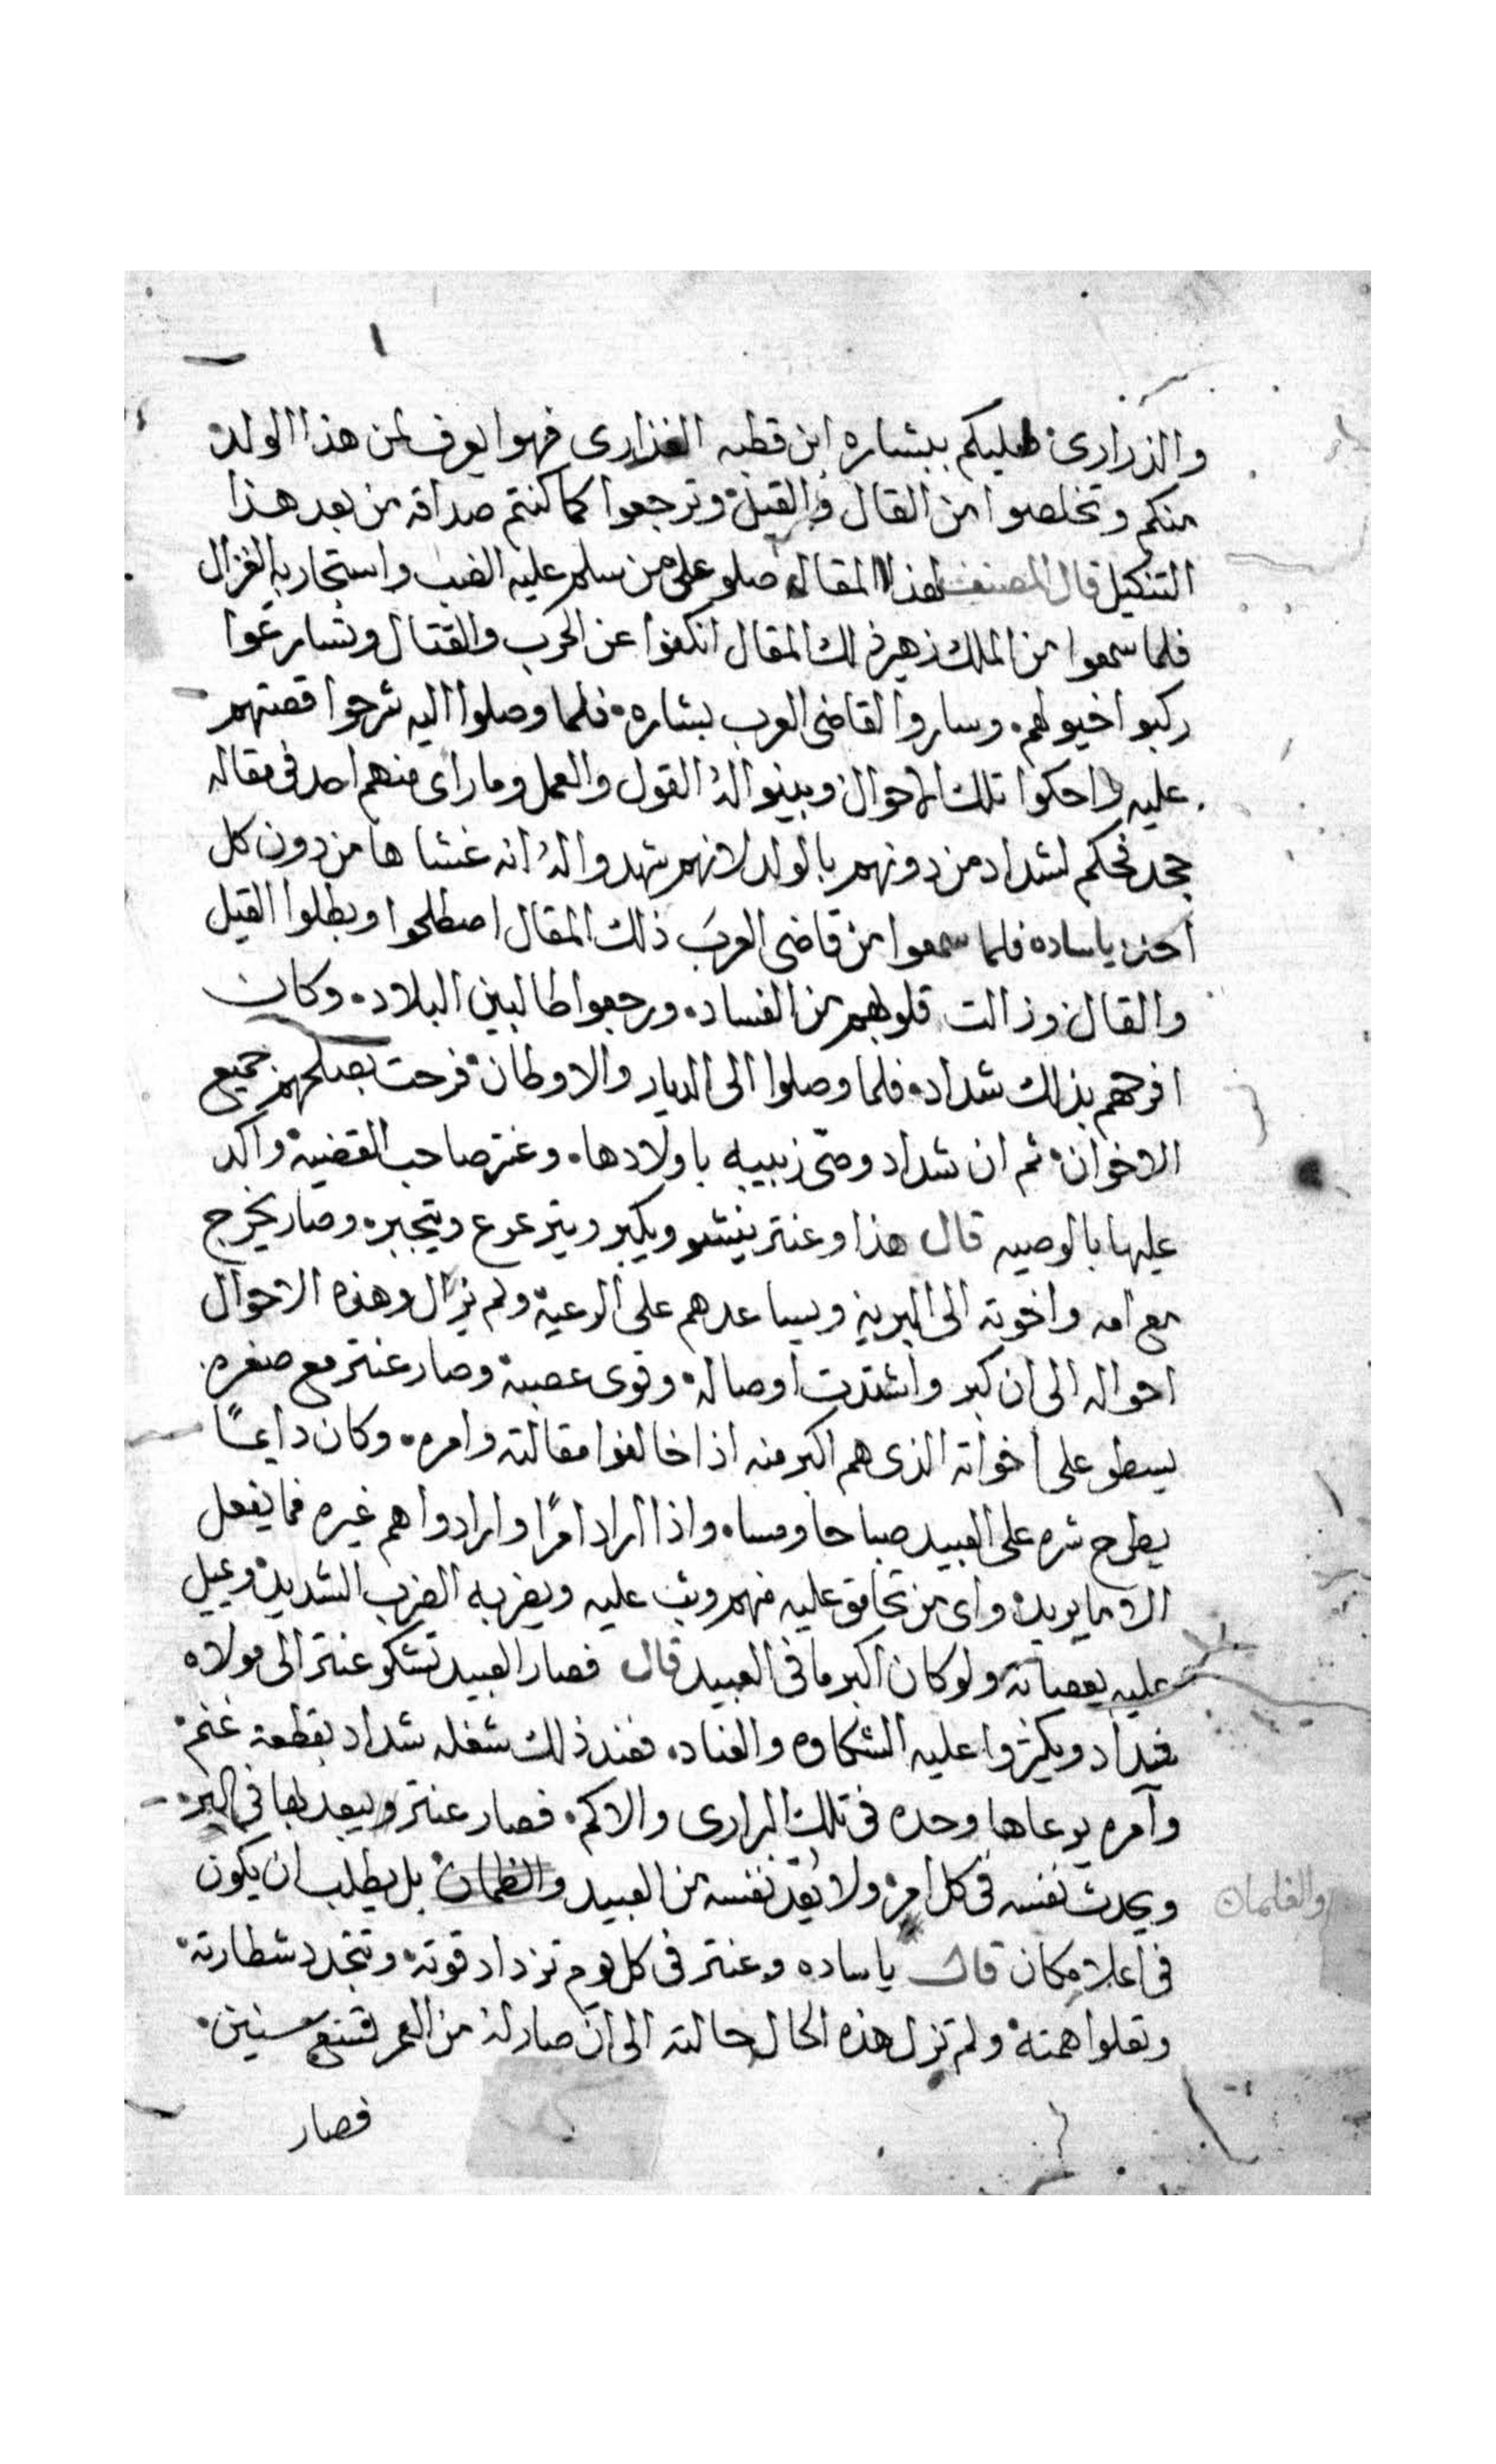 والذراري فعليكم ببشاره ابن قطبه الفذاري فهوا يعرف لمن هذا الولد
منكم وتخلصوا من القال والقيل وترجعوا كما كنتم صداقه من بعد هذا
التنكيل قال المصنف لهذا المقال صلو على من سلم عليه الضب واستجار به الغزال
فلما سمعوا من الملك زهير ذلك المقال انكفوا عن الحرب والقتال وتسارعوا
ركبو اخيولهم وساروا لقاضي العرب بشاره فلما وصلوا اليه شرحوا قصتهم
عليه واحكوا تلك الاحوال وبينوا له القول والعمل وما راى منهم احد في مقاله
جحد فحكم لشداد من دونهم بالولد لانهم شهدوا له انه غشاها من دون كل
احد يا ساده فلما سمعوا من قاضي العرب ذلك المقال اصطلحوا وبطلوا القيل
والقال وزالت قلوبهم من الفساد ورجعوا طالبين البلاد وكان
افرحهم بذلك شداد فلما وصلوا الى الديار والاوطان فرحت بصلحهم جميع
الاخوان ثم ان شداد وصّى زبيبه باولادها وعنتر صاحب القضية واكد
عليها بالوصيه قال هذا وعنتر ينشو ويكبر ويترعرع ويتجبر وصار يخرج
مع امه واخوته الى البرية ويساعدهم على الرعية ولم يزال وهذه الاحوال
احواله الى ان كبر واشتدت اوصاله وقوى عصبه وصار عنتر مع صغره
يسطو على اخواته الذى هم اكبر منه اذا خالفوا مقالته وامره وكان دايمًا
يطرح شره على العبيد صباحا ومساء واذا اراد امرًا وارادوا هم غيره فما يفعل
الا ما يريد واى من تحامق عليه منهم وثب عليه ويضربه الضرب الشديد ويميل
عليه بعصاته ولو كان اكبر ما في العبيد قال فصار العبيد تشكو عنتر الى مولاه
شداد ويكثروا عليه الشكاوه والعناد فعند ذلك شغله شداد بقطعة غنم
وآمره يرعاها وحده في تلك البراري والاكم فصار عنتر ويبعد بها في البر
ويحدث نفسه في كل امر ولا يعدّ نفسه من العبيد والغلمان بل يطلب ان يكون
والغلمان
في اعلا مكان قال يا ساده وعنتر في كل يوم تزداد قوته وتتجدد شطارته
وتعلوا همته ولم تزل هذه الحال حالته الى ان صار له من العمر تسع سنين
فصار